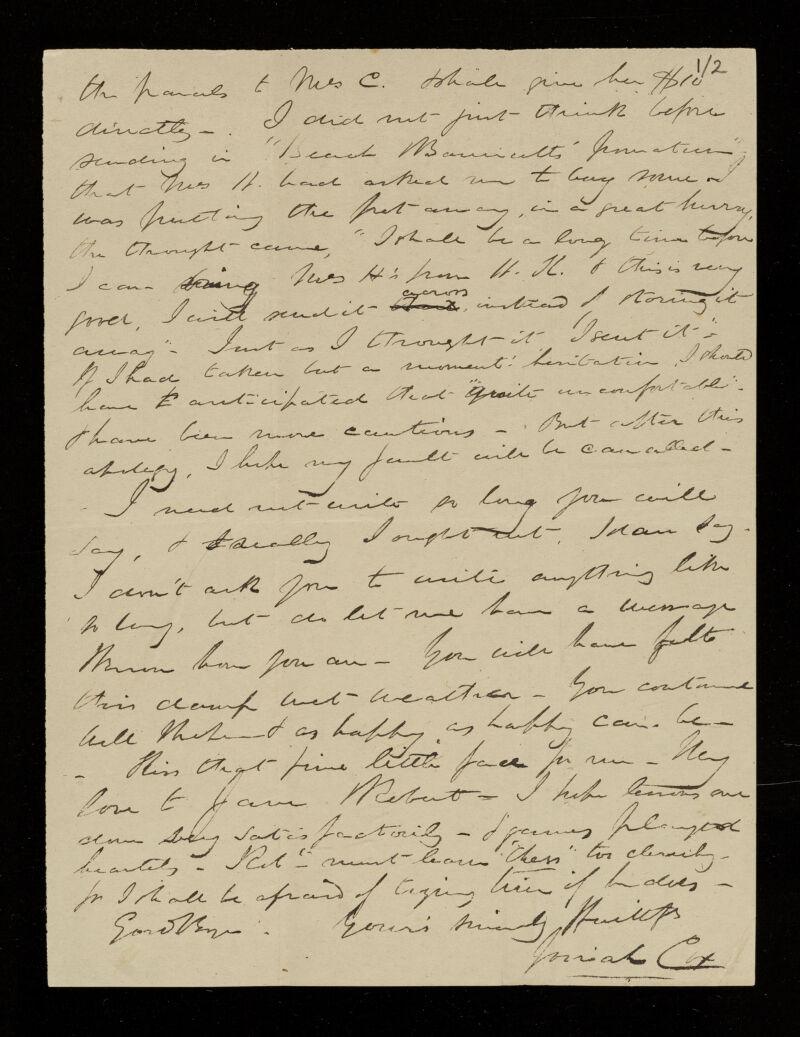 the parcels to Mrs C. & shall give her $10 1/2
directly - . I did not just think before
sending in "Beach & Barnicott's pomatum"
that Mrs H. had asked me to buy some & I
was putting the pot away, in a great hurry,
the thought came, "I shall be a long time before
I can bring Mrs H's from H. K. & this is very
good, I will send it across, instead of storing it
away" - Just as I thought it I sent it -
If I had taken but a moment's hesitation, I should
have anticipated that "quite uncomfortable" -
& have been more cautious - But after this
apology, I hope my fault will be cancelled -
- I need not write so long you will
say, & really I ought not, I dare say -
I don't ask you to write anything like
so long, but do let me have a message
how you are - You will have felt
this damp wet weather - You continue
well I hope & as happy as happy can be -
- Kiss that fine little face for me - My
love to Jane & Robert - I hope lessons are
done very satisfactorily - & games played
heartily - Robt must learn "chess" too cleverly -
for I shall be afraid of trying him if he does -
Good Bye . Yours sincerely
Josiah Cox